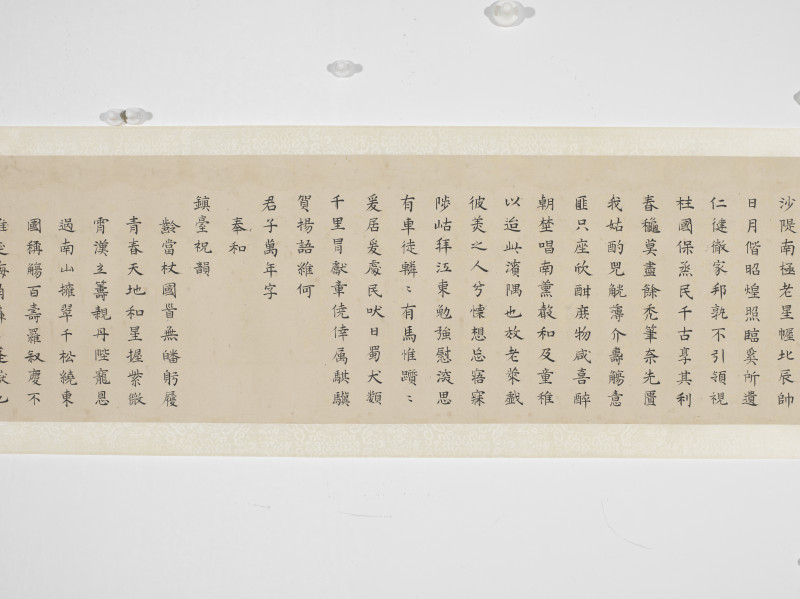 沙隄南極老星幄北辰帥
日月偕昭煌照臨奚所遺
仁健儆家邦孰不引領視
柱國保烝民千古享其利
春穐莫盡餘禿筆奈先匱
我姑酌兕觥薄介壽觴意
匪只座欣酣庶物咸喜醉
朝埜唱南薰敲和及童稚
以迨此濱隅也放老萊戲
彼美之人兮懷想忘寤寐
陟岵拜江東勉強慰淡思
有車徒轔〻有馬惟躓〻
爰居爰處民吠日蜀犬纇
千里冒獻聿侥倖属駃驥
賀揚語維何
君子萬年字
鎮臺祝韻
奉和
齡當杖國昔無皤躬履
青春天地和星握紫微
霄漢主籌親丹陛寵恩
過南山擁翠千松繞東
國稱觴百壽羅叙慶不